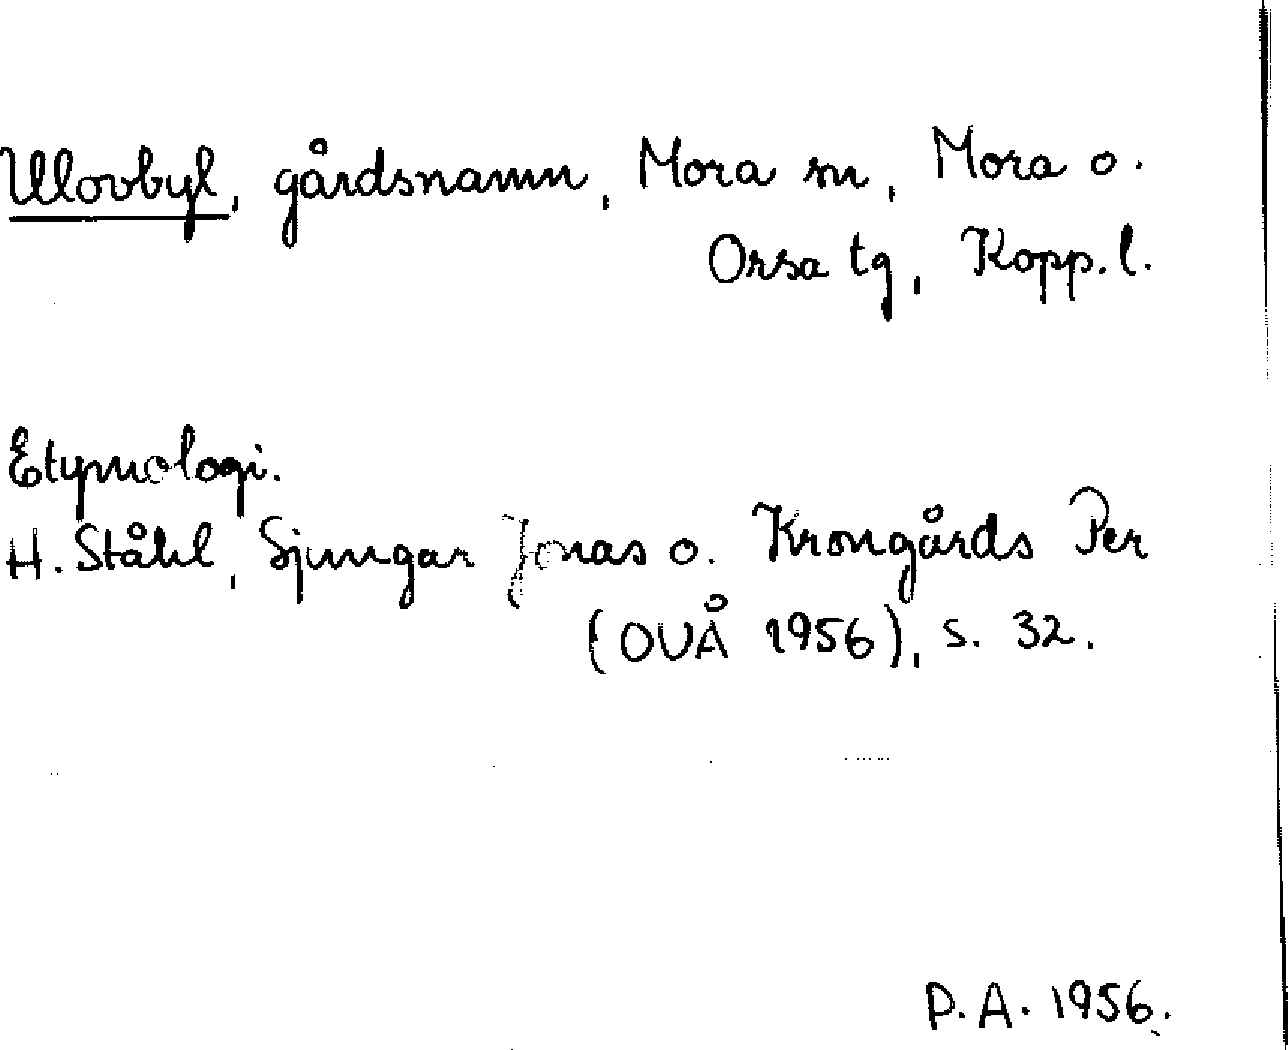 Ulovbyl, gårdsnamn, Mora sn, Mora o.
Orsa tg, Kopp. l.
Etymologi.
H. Ståhl, Sjungar Jonas o. Krongårds Per
(OUÅ 1956), s. 32.
P. A. 1956.